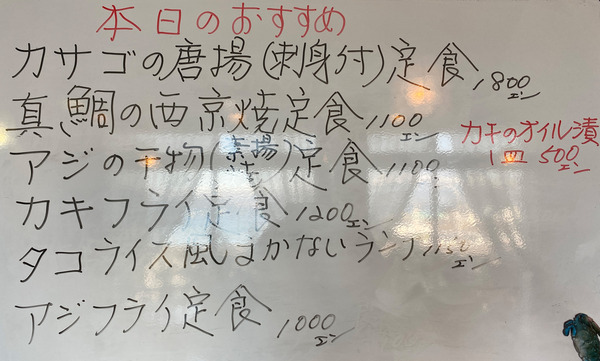 本日のおすすめ
カサゴの唐揚(刺身付)定食 1800エン
真鯛の西京焼定食 1100エン
アジの干物(素揚)定食 1100
カキフライ定食 1200エン
タコライス風まかないランチ エン
アジフライ定食 1000エン
カキのオイル漬
1皿 500エン